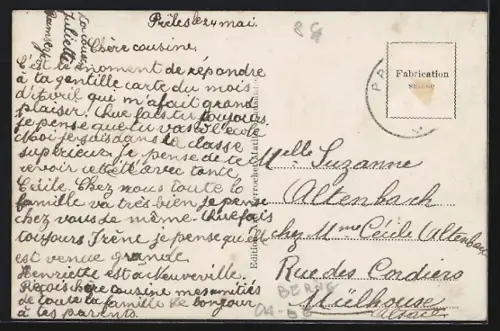 Prêles le 24 mai.
Chère cousine.
C'est le moment de répondre
à ta gentille carte du mois
d'Avril que m'a fait grand
plaisir. Que fais tu toujours
je pense que tu vas à l'école
Moi je suis dans la classe
supérieur je pense de te
revoir cet été avec tante
Cécile. Chez nous toute la
famille va très bien je pense
chez vous de même. Que fais
toujours Irène je pense qu'el
est venue grande
Henriette est à Neuveville.
Reçois chère cousine mes amitiés
de toute la famille le bonjour
à tes parents.
ta cousine
Juliette
Fabrication
suisse
Melle Suzanne
Altenbach
chez Mme Cécile Altenbach
Rue des Cordiers
Mülhouse
Alsace
BERNE